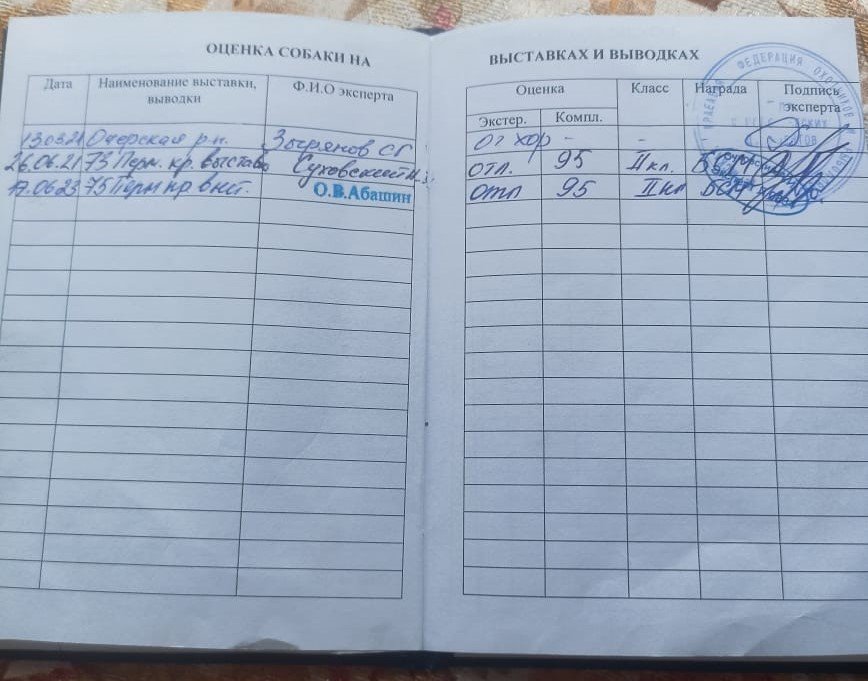 ОЦЕНКА СОБАКИ НА
ВЫСТАВКАХ И ВЫВОДКАХ
Дата
Наименование выставки,
выводки
Ф.И.О эксперта
Оценка
Экстер.
Компл.
Класс
Награда
Подпись
эксперта
13.03.21 Очерская р.н. Зырянов СГ Оч хор - -
26.06.21 73 Перм. кр. выставка Суховский отл. 95 II кл. БСМ
17.06.23 75 Перм кр выст. О.В.Абашин отл 95 II кл БСМ
ФЕДЕРАЦИЯ